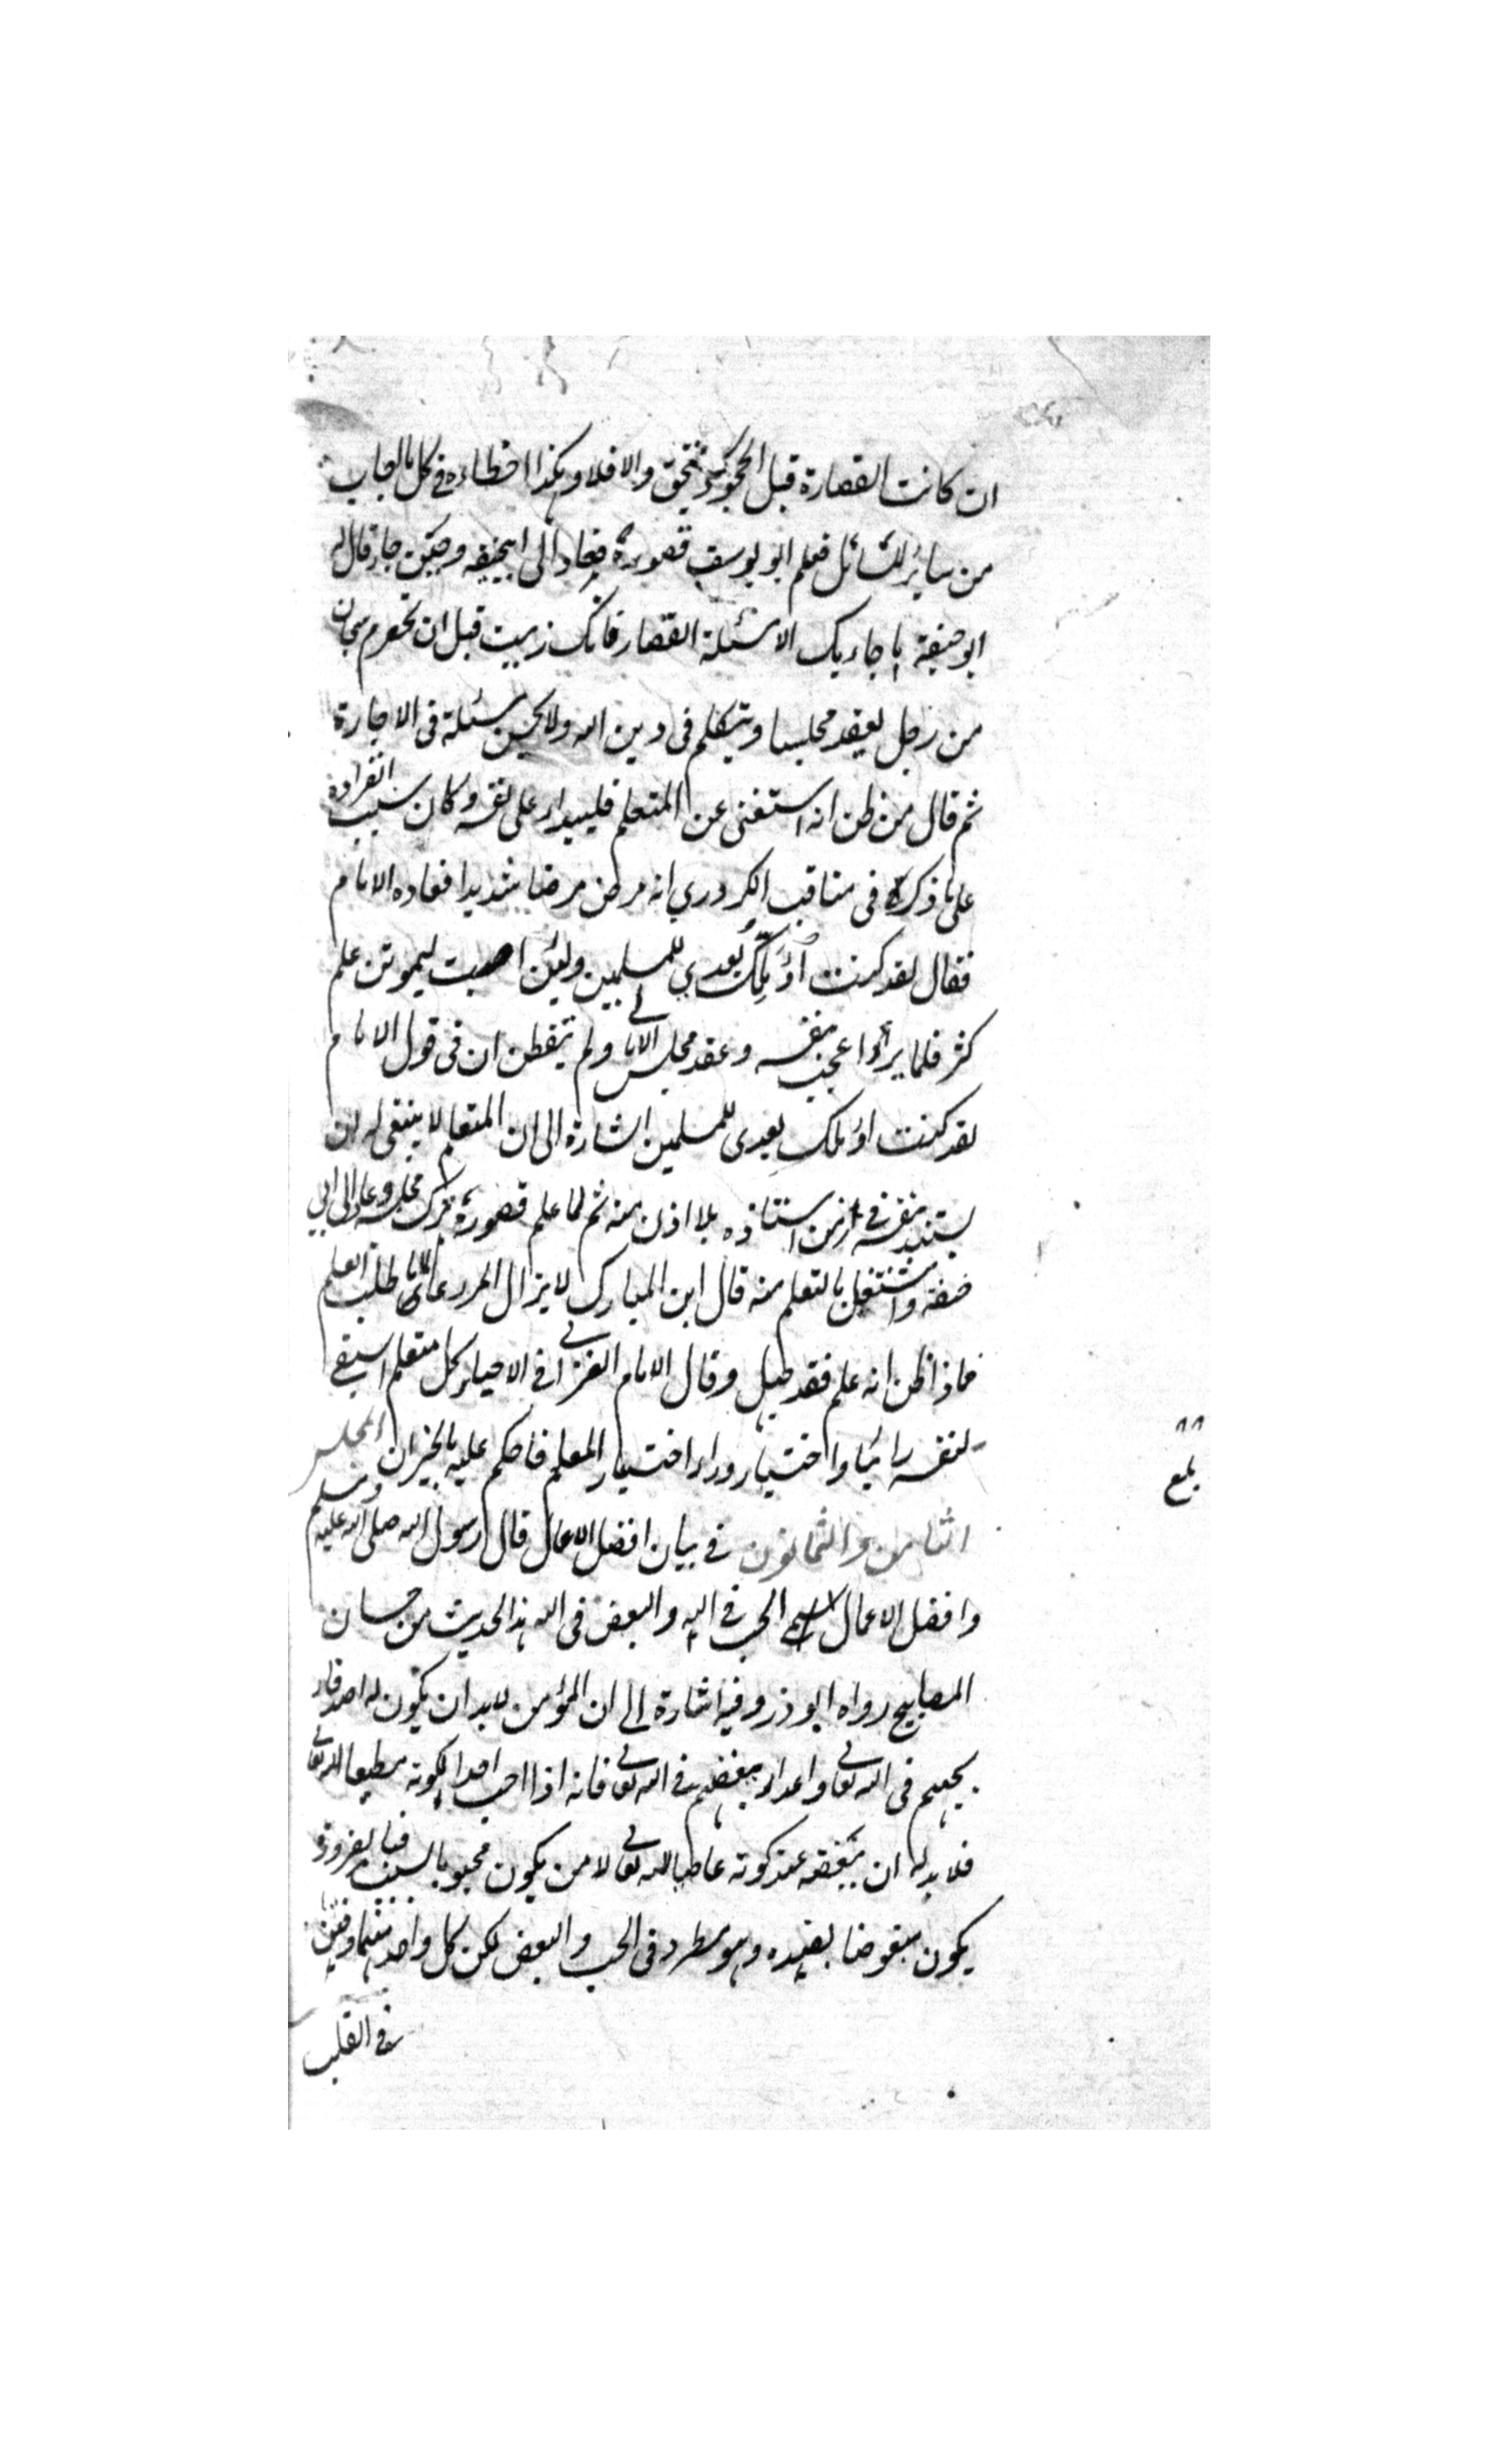 ان كانت القصارة قبل الجحود يستحق والا فلا وهكذا اخطاءه في كل ما اجاب
من سائر المسائل فعلم ابو يوسف قصوره فعاد الى ابيحنيفه وحين جاء قال له
ابو حنيفة ما جاء بك الا مسئلة القصار فانك زببت قبل ان تحصرم سبحان
من رجل يعقد مجلسا ويتكلم فى دين الله ولا يحسن مسئلة فى الاجارة
ثم قال من ظن انه استغنى عن المتعلم فليبك على نفسه وكان سبب انفراده
على ما ذكره فى مناقب الكردري انه مرض مرضا شديدا فعاده الامام
فقال لقد كنت اؤملك بعدي للمسلمين ولئن اصبت ليموتن علم
كثر فلما برأ اعجب بنفسه وعقد مجلس الامالي ولم يتفطن ان فى قول الامام
لقد كنت اؤملك بعدى للمسلمين اشارة الى ان المتعلم لا ينبغى له ان
يستبد بنفسه في زمن استاذه بلا اذن منه ثم لما علم قصوره ترك مجلسه وعاد الى ابي
حنيفة واشتغل بالتعلم منه قال ابن المبارك لا يزال المرء عالما ما طلب العلم
فاذا ظن انه علم فقد جهل وقال الامام الغزالي في الاحياء كل متعلم استبقى
لنفسه رائيا واختيار وراء اختيار المعلم فاحكم عليه بالخسران المجلس
الثامن والثمانون في بيان افضل الاعمال قال رسول الله صلى الله عليه وسلم
وافضل الاعمال الحب في الله والبغض فى الله هذا الحديث من حسان
المصابيح رواه ابو ذر وفيه اشارة الى ان المؤمن لابد ان يكون له اصدقاء
يحبهم فى الله تعالى واعداء يبغضهم في الله تعالى فانه اذا احب احدا لكونه مطيعا لله تعالى
فلا بد له ان يبغضه عند كونه عاصيا لله تعالى لا من يكون محبوبا لسبب فبالضرورة
يكون مبغوضا لضده وهو مطرد فى الحب والبغض لكن كل واحد منهما دفين
في القلب
٨٨
بلغ